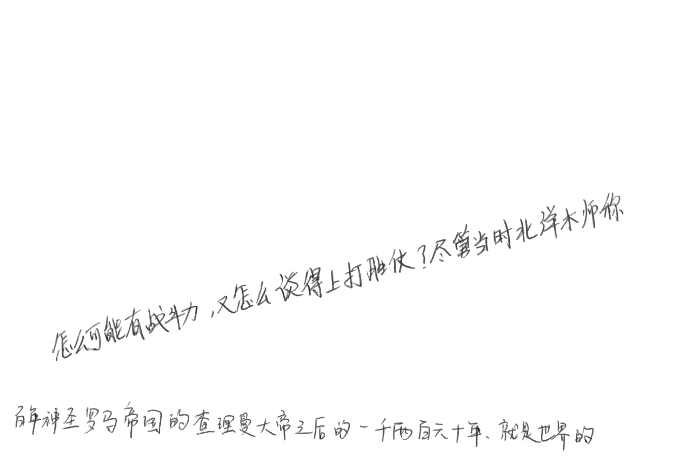 怎么可能有战斗力，又怎么谈得上打胜仗？尽管当时北洋水师你
百年神圣罗马帝国的查理曼大帝之后的一千两百六十年、就是世界的